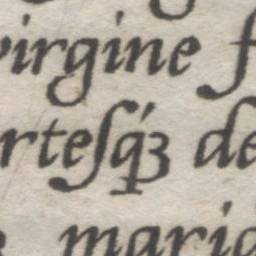 virgine f
rteſq́ꝫ de
maria